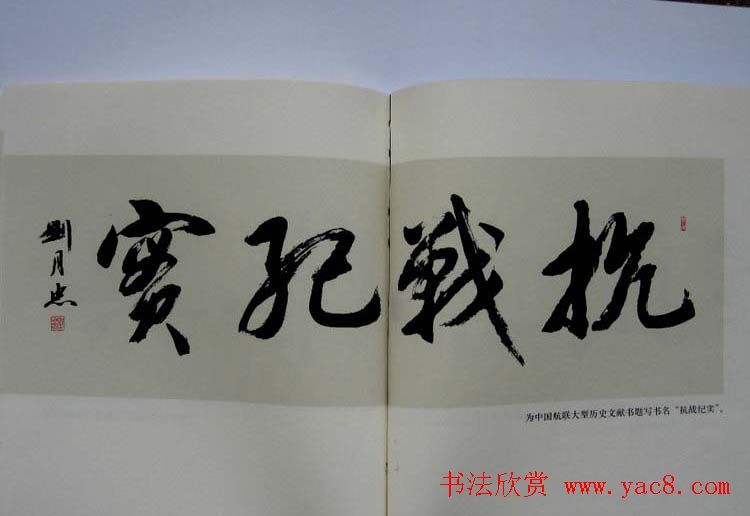 抗戰紀實
劉月忠
为中国航联大型历史文献书题写书名“抗战纪实”。
书法欣赏 www.yac8.com